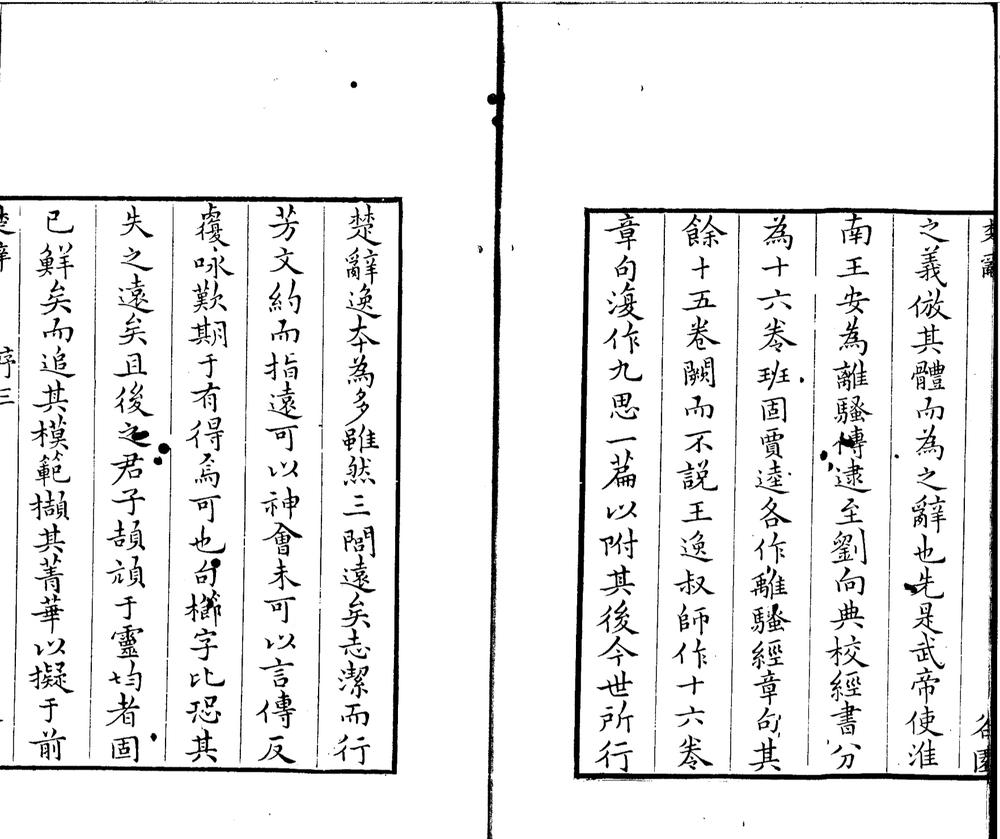 楚辭
谷園
之義倣其體而為之辭也先是武帝使淮
南王安為離騷傳逮至劉向典校經書分
為十六卷班固賈逵各作離騷經章句其
餘十五卷闕而不說王逸叔師作十六卷
章句復作九思一篇以附其後今世所行
楚辭逸本為多雖然三閭遠矣志潔而行
芳文約而指遠可以神會未可以言傳反
覆咏歎期于有得焉可也句櫛字比恐其
失之遠矣且後之君子頡頏于靈均者固
已鮮矣而追其模範擷其菁華以擬于前
楚辭 序三